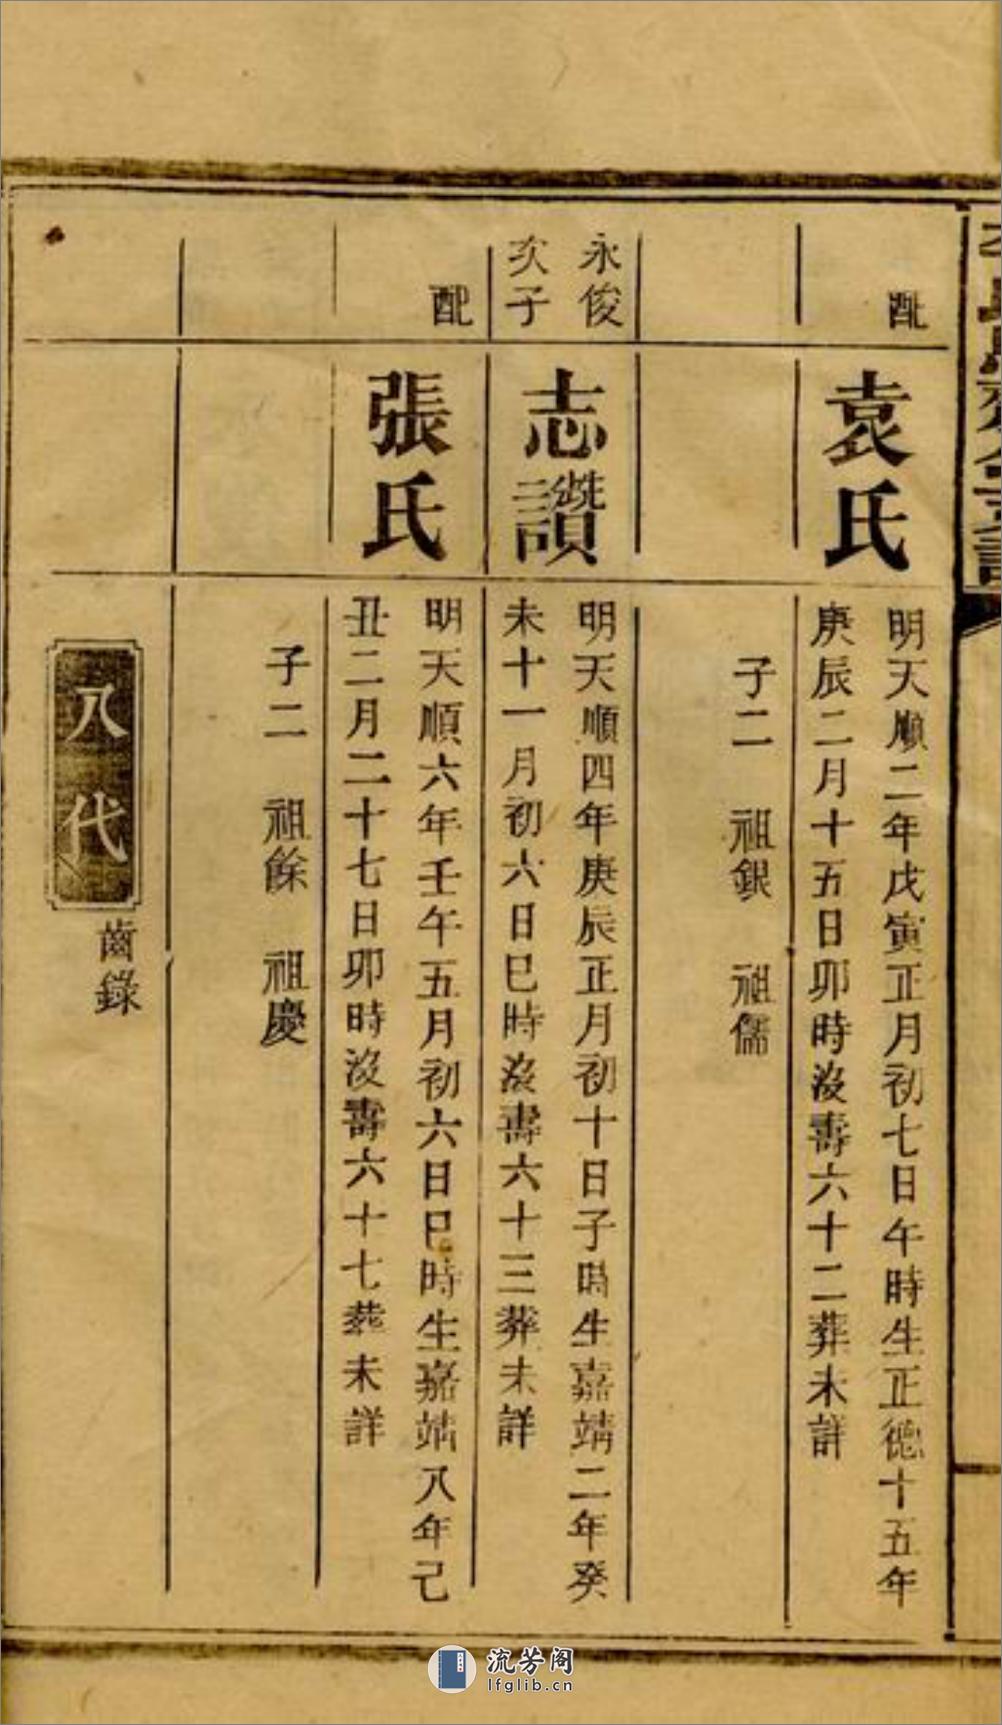 配
袁氏
明天順二年戊寅正月初七日午時生正德十五年
庚辰二月十五日卯時沒壽六十二葬未詳
子二 祖銀 祖儒
永俊
次子
志讚
明天順四年庚辰正月初十日子時生嘉靖二年癸
未十一月初六日巳時沒壽六十三葬未詳
配
張氏
明天順六年壬午五月初六日巳時生嘉靖八年己
丑二月二十七日卯時沒壽六十七葬未詳
子二 祖餘 祖慶
八代
齒錄
流芳阁
lfglib.cn